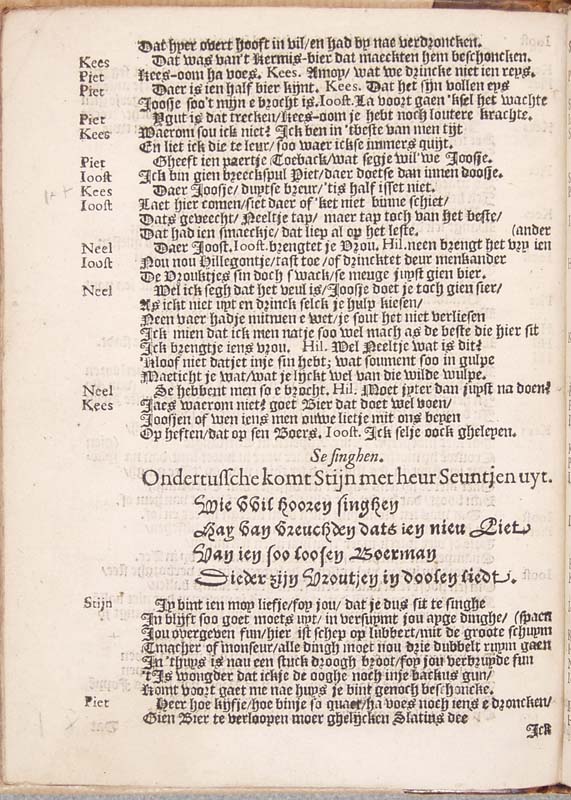 Dat hyer overt hooft in vil/en had by nae verdroncken.
Kees Dat was van't Kermis-bier dat maeckten hem beschoncken.
Piet Kees-oom ha voes. Kees. Annoy/ wat we drincke niet ien reys.
Piet Daer is ien half bier kijnt. Kees. Dat het sijn vollen eys
Joosje soo't mijn e brocht is. Joost. La voort gaen 'ksel het wachte
Piet Ygut is dat trecken/Kees-oom je hebt noch loutere krachte.
Kees Waerom sou ick niet? Ick ben in 'tbeste van men tijt
En liet ick die te leur/ soo waer ickse immers quijt.
Piet Gheeft ien paertje Toeback/wat segje wil we Joosje.
Joost Ick bin gien breeckspul Piet/daer doetse dan innen doosje.
Kees Daer Joosje/ duytse breur/'tis half isset niet.
Joost Laet hier comen/siet daer of 'ket niet binne schiet/
Dats geveecht/ Neeltje tap/ maer tap toch van het beste/
Dat had ien smaeckje/ dat liep al op het leste. (ander
Neel Daer Joost. Joost. brengtet je Vrou. Hil. neen brengt het vry ien
Joost Nou nou Hillegontje/tast toe/of drincktet deur menkander
De Vrouktjes sin doch swack/se meuge juyst gien bier.
Neel Wel ick segh dat het veul is/Joosje doet je toch gien sier/
As ickt niet uyt en drinck selck je hulp kiesen/
Neen vaer hadje mitnuen e wet/je sout het niet verliesen
Ick mien dat ick men natje soo wel mach as de beste die hier sit
Ick brengtje iens vrou. Hil. Wel Neeltje wat is dit?
'Kloof niet datjet inje sin hebt; wat soument soo in gulpe
Maeticht je wat/wat je lijckt wel van die wilde wulpe.
Neel Se hebbent men so e brocht. Hil. Moet jyter dan juyst na doen?
Kees Jaes waerom niet? goet Bier dat doet wel voen/
Joosjen of wen iens men ouwe lietje mit ons beyen
Op heften/dat op sen Boers. Joost. Ick selje oock gheleyen.
Se singhen.
Ondertussche komt Stijn met heur Seuntjen uyt.
Wie Wil hooren singhen
Hay van vreuchden dats ien nieu Liet
Van ien soo loosen Boerman
Dieder zijn Vroutjen in doolen liedt.
Stijn Jy bint ien moy liefje/foy jou/ dat je dus sit te singhe
In blijft soo goet moets uyt/ in versuymt jou ayge dinghe/ (spacn
Jou overgeven fun/hier ist schep op lubbert/mit de groote schuym
Tmacher of monseur/alle dingh moet nou drie dubbelt ruym gaen
In 'thuys is nau een stuck droogh broot/foy jou verbruyde fun
'tIs wongder dat ickje de ooghe noch inje backus gun/
Komt voort gaet me nae huys je bint genoch beschoncke.
Piet Heer hoe kijfje/hoe binje so quaet/ha voes noch iens e droncken/
Gien Bier te verloopen moer ghelijcken Slatius dee
Ick